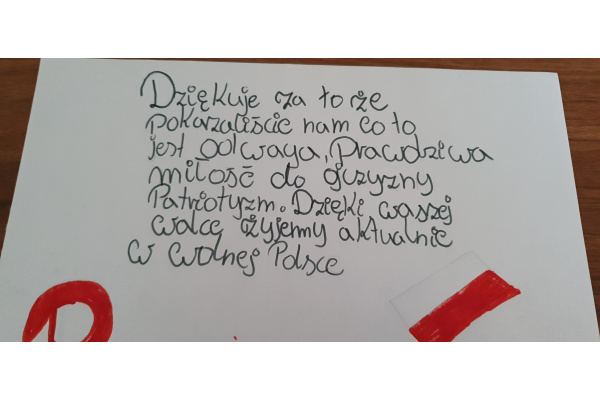 Dziękuje za to że
pokazaliście nam co to
jest odwaga, Prawdziwa
miłość do ojczyzny
Patriotyzm. Dzięki waszej
walce żyjemy aktualnie
w wolnej Polsce